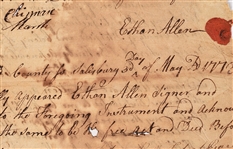 Ethan Allen
County ss Salisbury 3d Day of May AD 177
appeared Ethan Allen Signer and
to the foregoing Instrument and Acknow
the same to be his free Act and Deed Befor